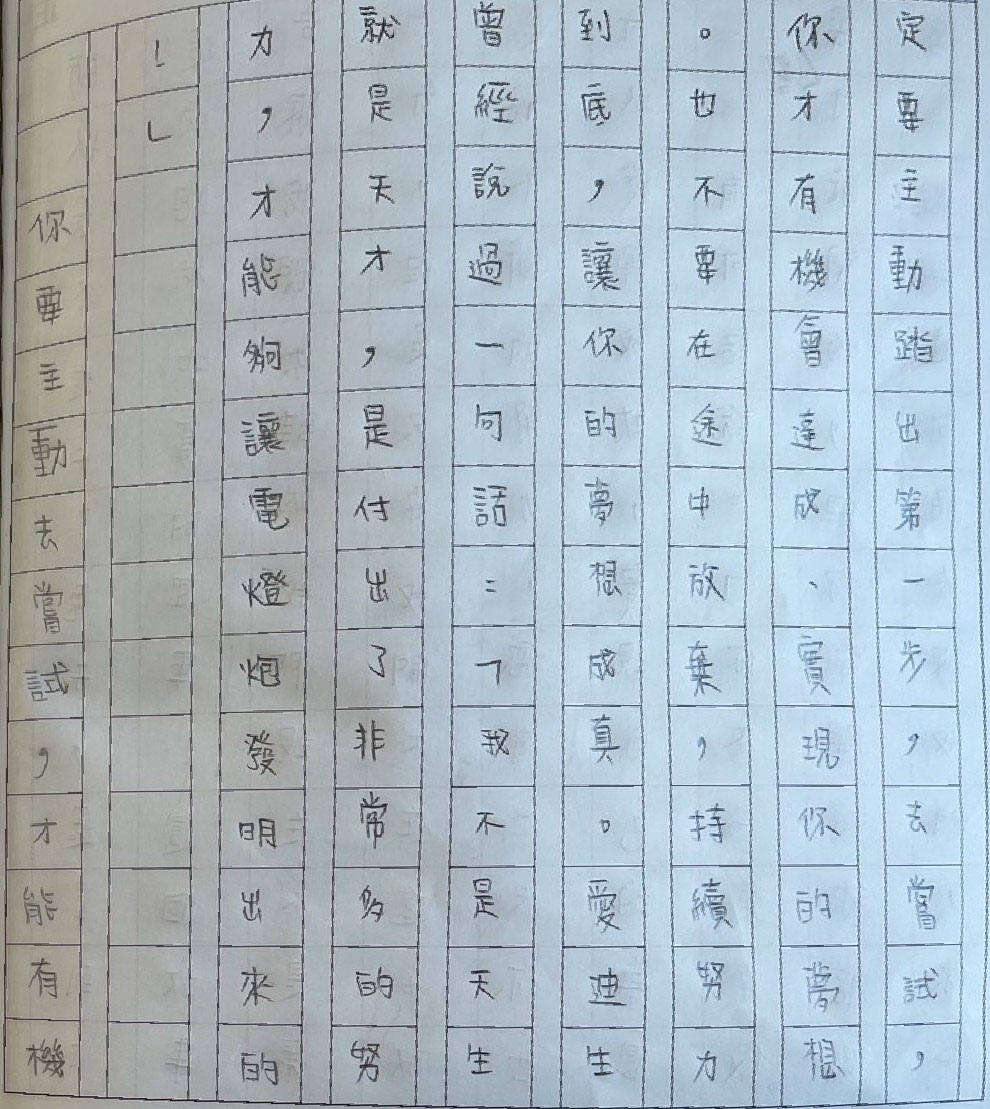 定要主動踏出第一步，去嘗試，
你才有機會達成、實現你的夢想
。也不要在途中放棄，持續努力
到底，讓你的夢想成真。愛迪生
曾經說過一句話：「我不是天生
就是天才，是付出了非常多的努
力，才能夠讓電燈炮發明出來的
！」
你要主動去嘗試，才能有機